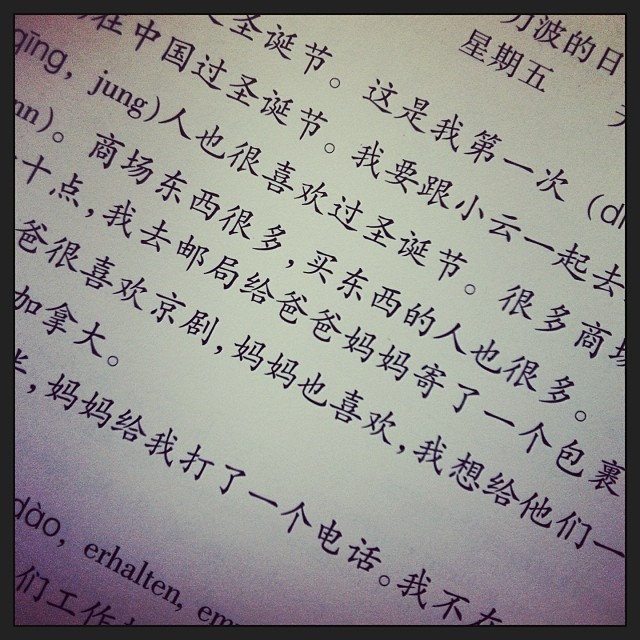 力波的日
星期五
圣诞节。这是我第一次 (dì
在中国过圣诞节。我要跟小云一起去
qīng, jung)人也很喜欢过圣诞节。很多商场
nn)。商场东西很多,买东西的人也很多。
十点,我去邮局给爸爸妈妈寄了一个包裹
爸很喜欢京剧,妈妈也喜欢,我想给他们一
加拿大。
,妈妈给我打了一个电话。我不在
dào, erhalten, em
们工作